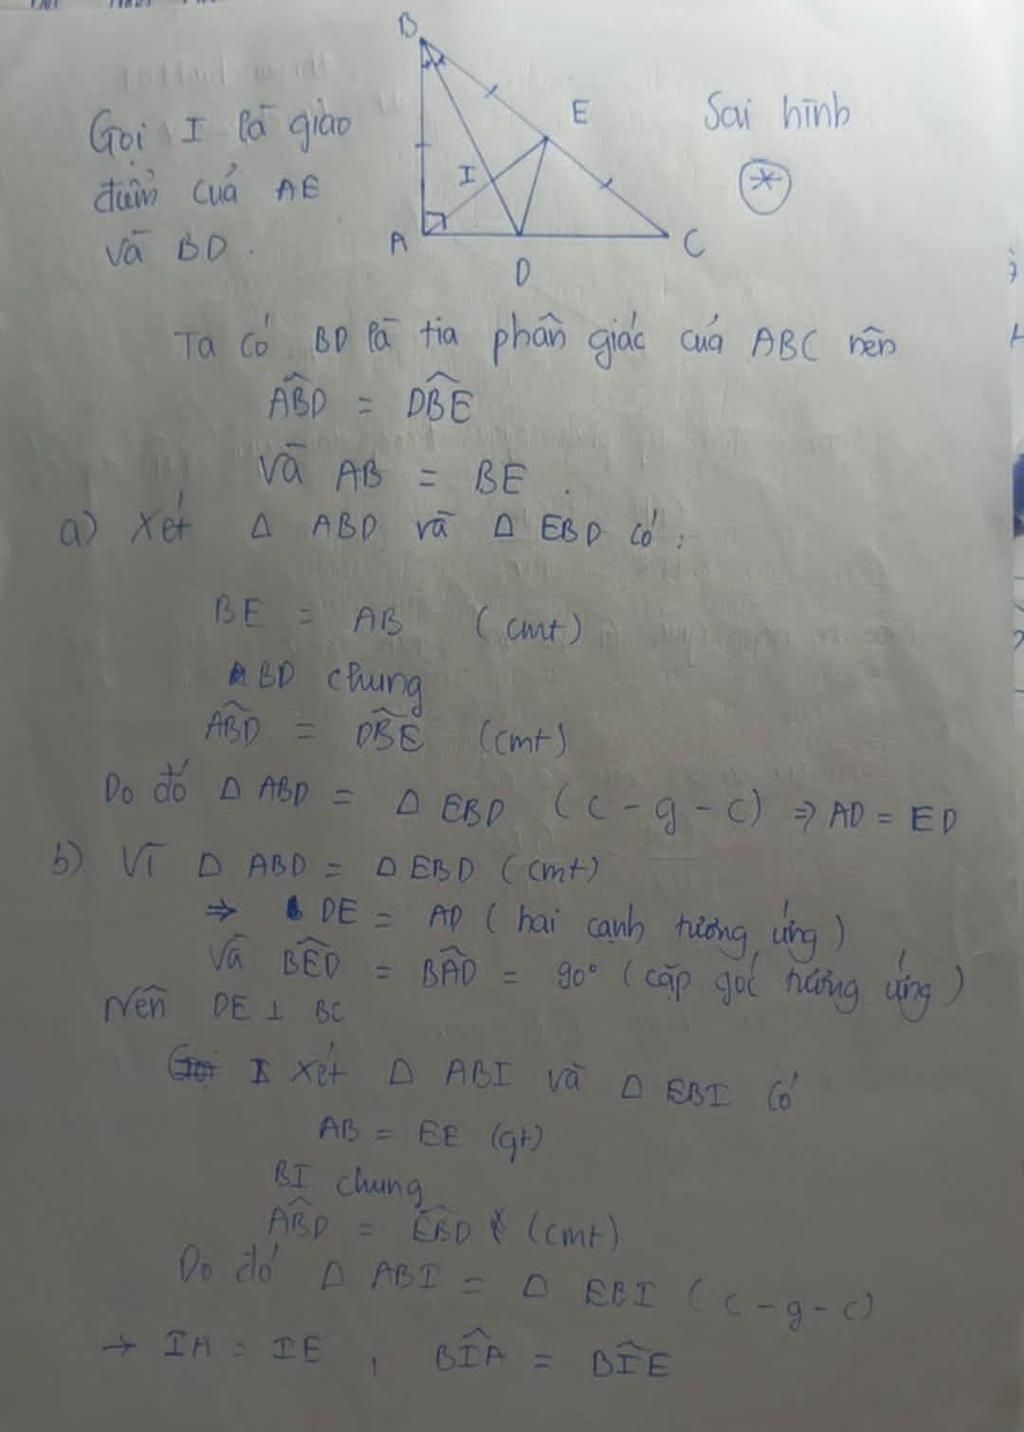 B
Gọi I là giao
điểm của AE
và BD.
E
I
A
D
C
Sai hình
*
Ta có BD là tia phân giác của ABC nên
ABD̂ = DB̂E
và AB = BE.
a) Xét Δ ABD và Δ EBD có:
BE = AB (cmt)
BD chung
AB̂D = DB̂E (cmt)
Do đó Δ ABD = Δ EBD (c-g-c) ⇒ AD = ED
b) Vì Δ ABD = Δ EBD (cmt)
⇒ DE = AD (hai cạnh tương ứng)
Và BÊD = BÂD = 90° (cặp góc tương ứng)
Nên DE ⊥ BC
Xét Δ ABI và Δ EBI có
AB = EE (gt)
BI chung
AB̂D = EB̂D (cmt)
Do đó Δ ABI = Δ EBI (c-g-c)
→ IA = IE, BÎA = BÎE